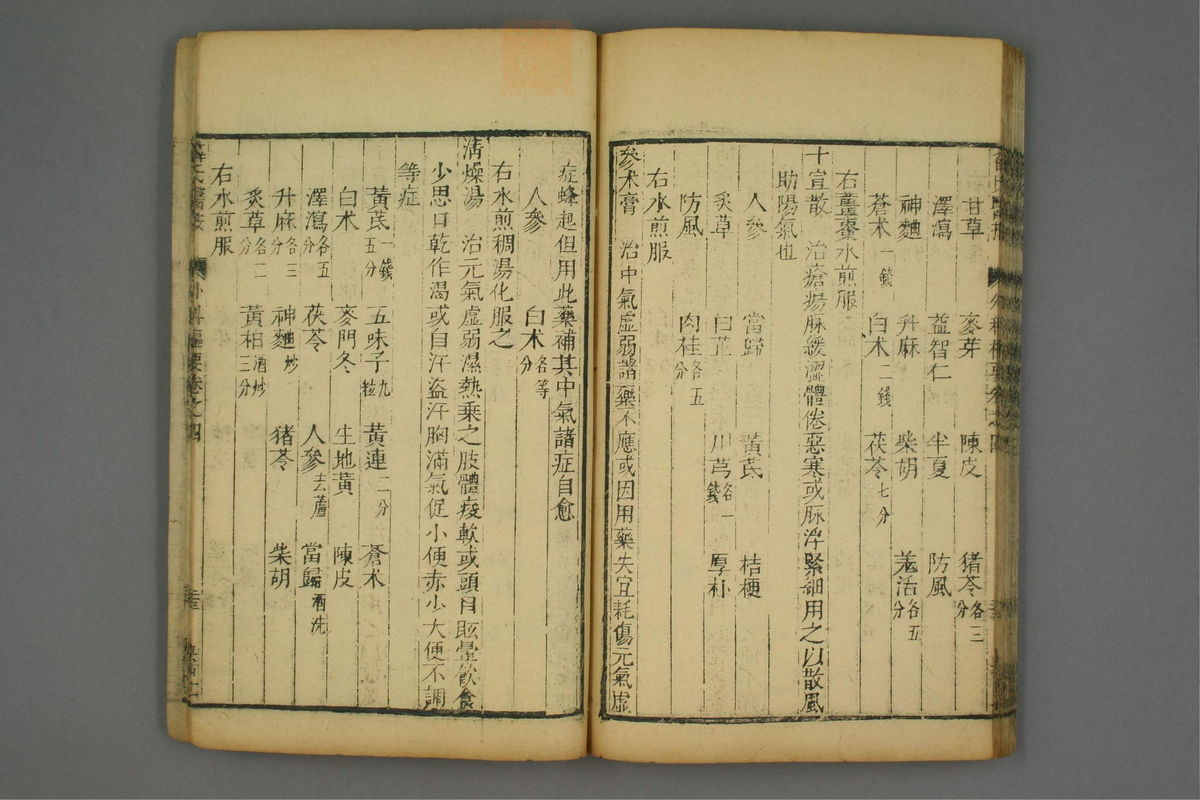 甘草 麥芽 陳皮 猪苓各三分
澤瀉 益智仁 半夏 防風
神麯 升麻 柴胡 羗活各五分
蒼术一錢 白术二錢 茯苓七分
右薑棗水煎服
十宣散 治瘡瘍脉緩澀體倦惡寒或脉浮緊細用之以散風
助陽氣也
人參 當歸 黃芪 桔梗
炙草 白芷 川芎各一錢 厚朴
防風 肉桂各五分
右水煎服
參术膏 治中氣虛弱諸藥不應或因用藥失宜耗傷元氣虛
症蜂起但用此藥補其中氣諸症自愈
人參 白术各等分
右水煎稠湯化服之
清燥湯 治元氣虛弱濕熱乘之肢體痠軟或頭目眩暈飲食
少思口乾作渴或自汗盜汗胸滿氣促小便赤少大便不調
等症
黃芪一錢五分 五味子九粒 黃連二分 蒼术
白术 麥門冬 生地黃 陳皮
澤瀉各五分 茯苓 人參去蘆 當歸酒洗
升麻各三分 神麯炒 猪苓 柴胡
炙草各二分 黃柏酒炒三分
右水煎服
薛氏醫按 外科樞要卷之四